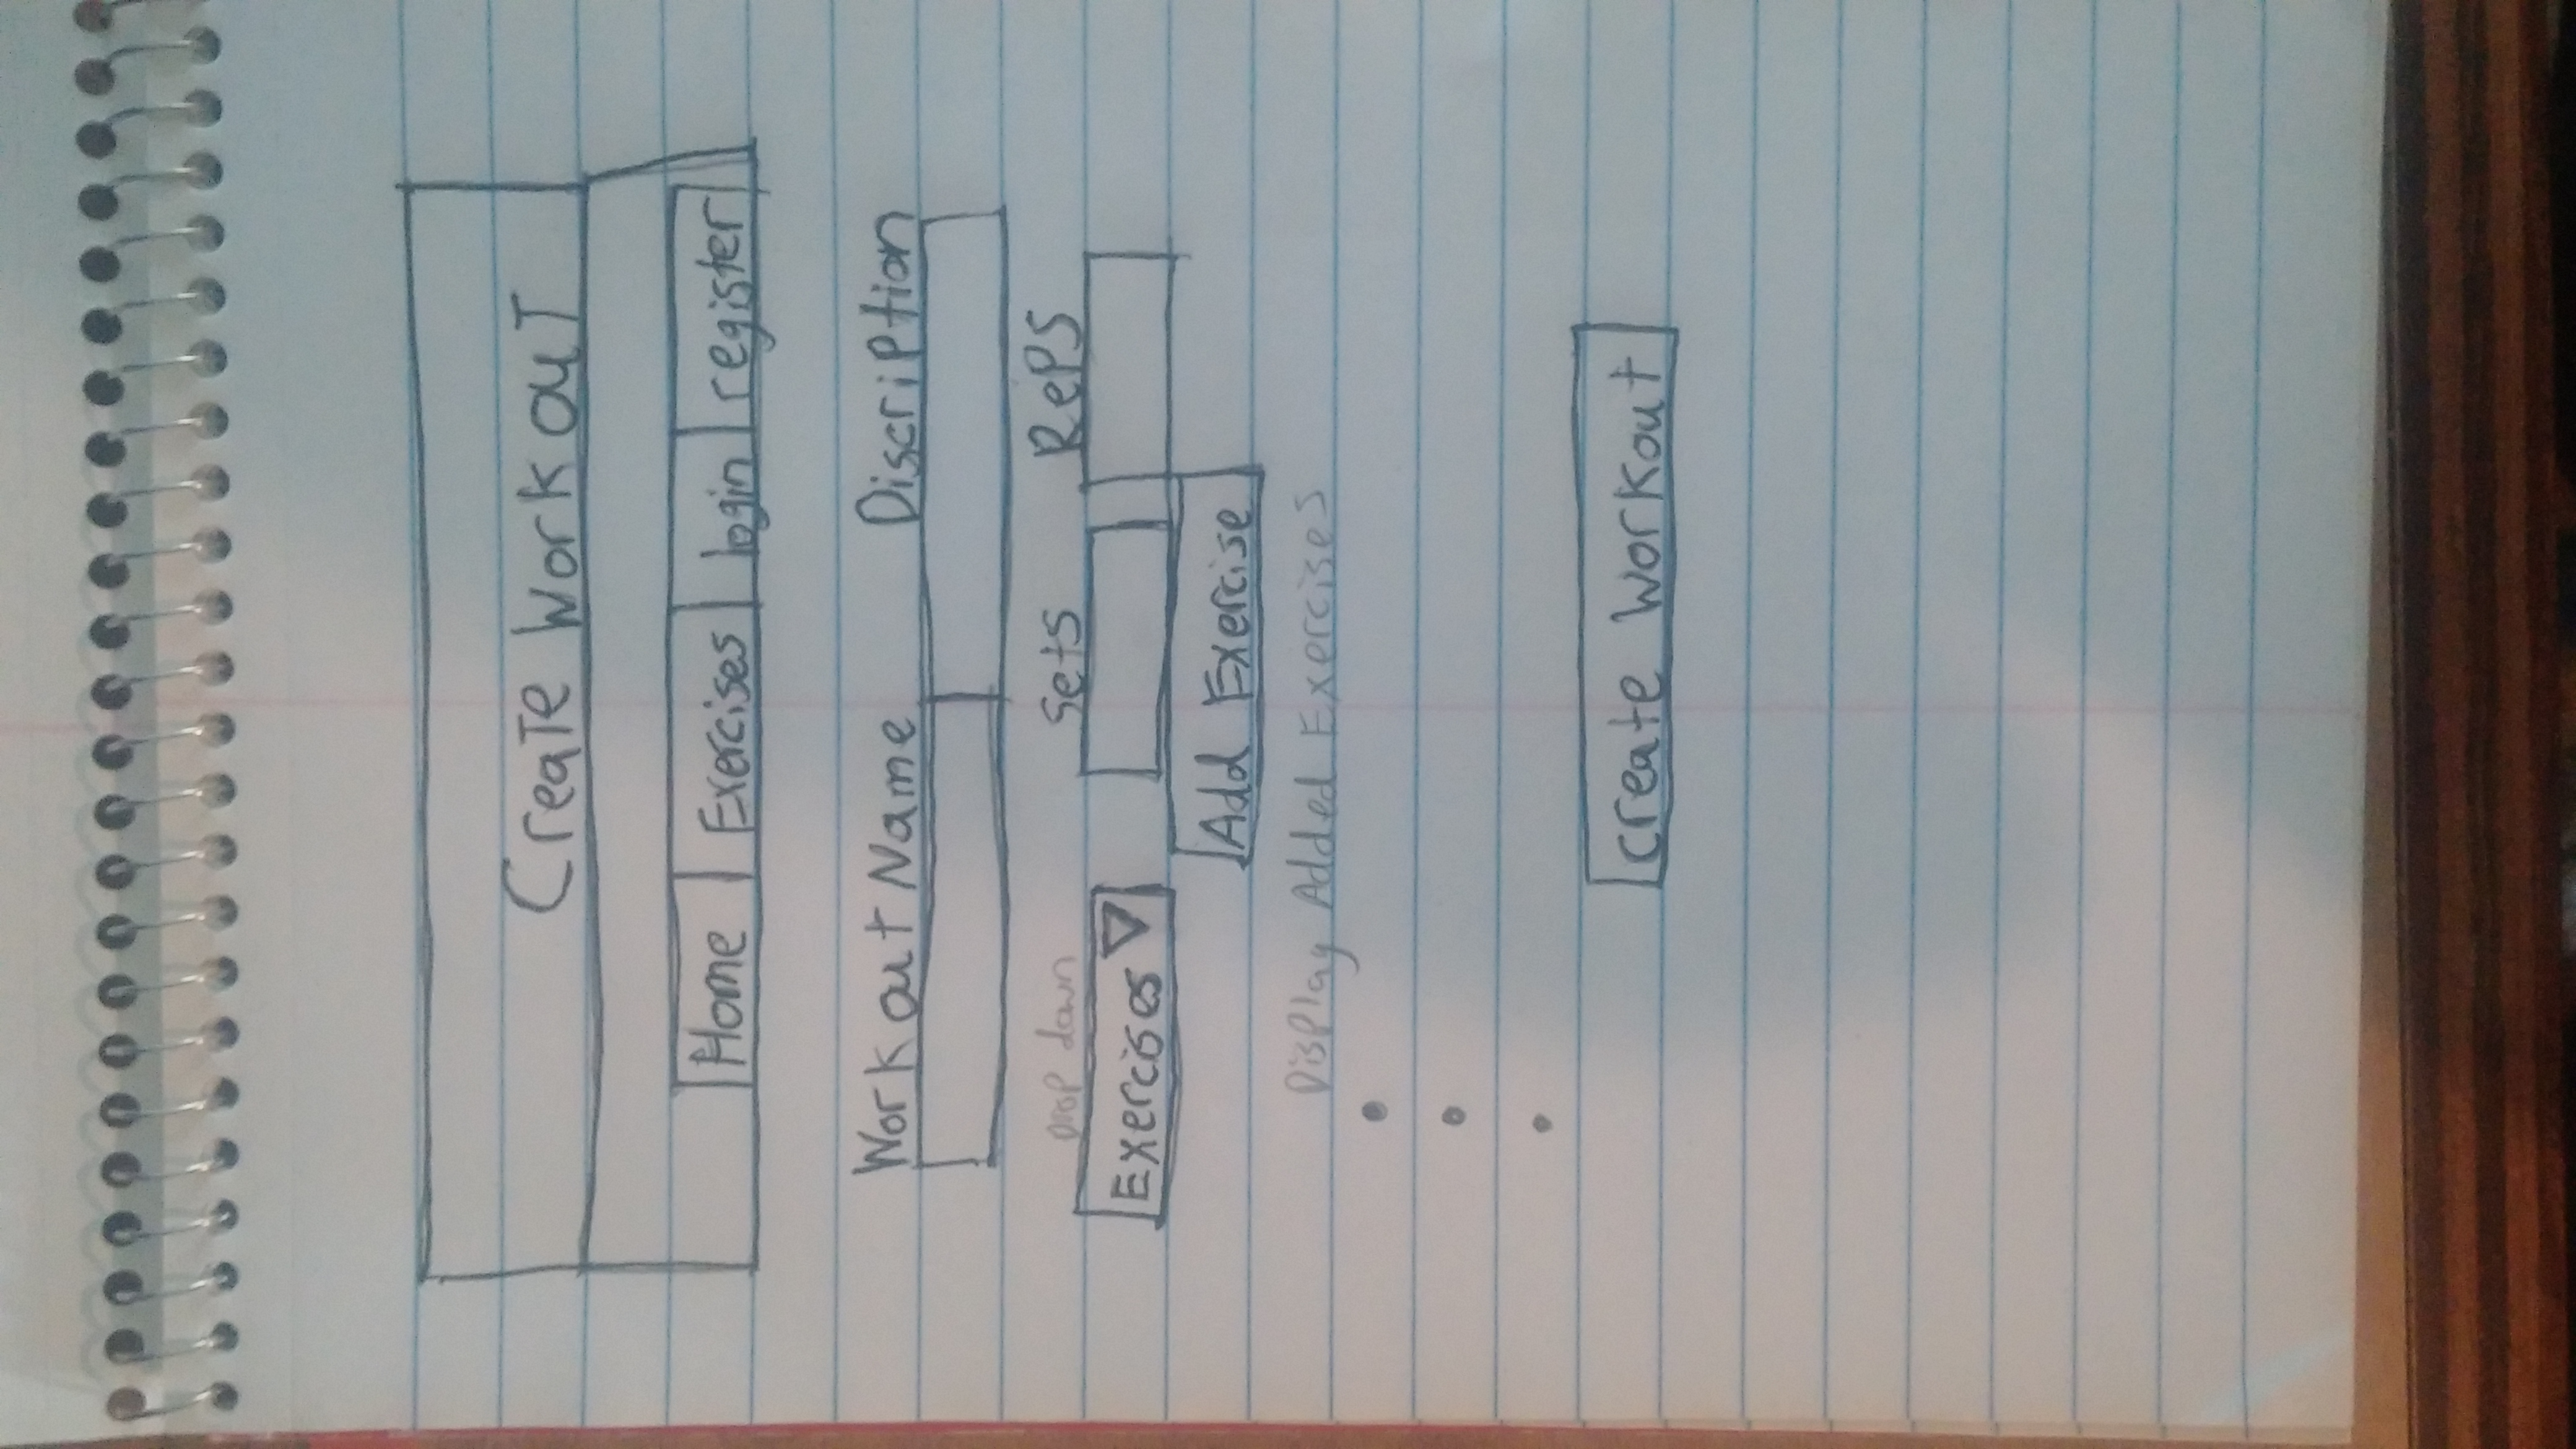 Create Workout
Home Exercises login register
Workout Name Discription
Drop down Sets Reps
Exercises
Add Exercise
Display Added Exercises
create workout